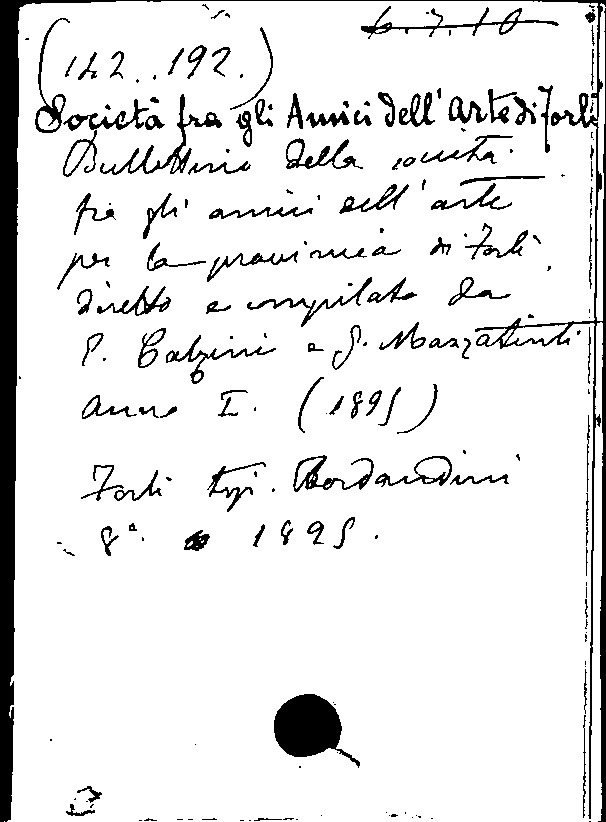 6.7.10
(142..192.)
Società fra gli Amici dell'Arte di Forlì
Bullettino della società
fra gli amici dell'arte
per la provincia di Forlì,
diretto e compilato da
E. Calzini e G. Mazzatinti
Anno I. (1895)
Forlì typ. Bordandini
8°. 1895.